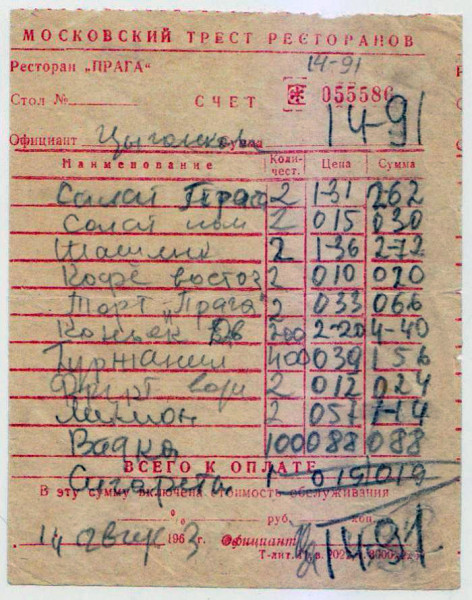 МОСКОВСКИЙ ТРЕСТ РЕСТОРАНОВ
Ресторан „ПРАГА“ 14-91
Стол № СЧЕТ 055586
14-91
Официант сумма
Наименование Количест. Цена Сумма
Салат Прага 2 1-31 262
Салат пом 2 015 030
Шашлык 2 1-36 2-72
Кофе восточ 2 010 020
Торт „Прага“ 2 033 066
Коньяк 200 2-20 4-40
Гурджаани 400 039 1 56
Фрукт вода 2 012 024
Лимон 2 057 1-14
Водка 100 088 088
ВСЕГО К ОПЛАТЕ
Сигареты 1 019 019
В эту сумму включена стоимость обслуживания
руб. коп.
14 август 1963 г. Официант 14-91